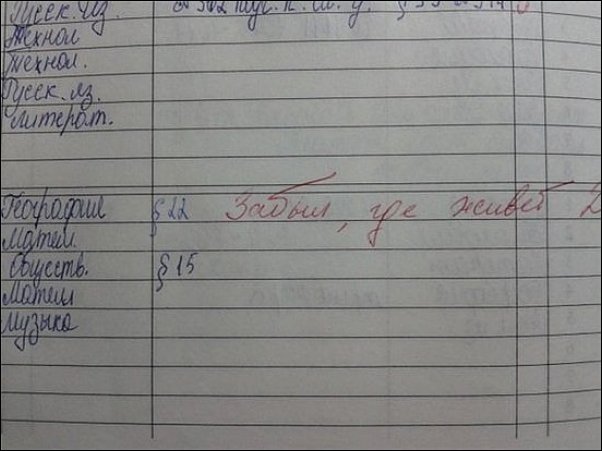 Русск. яз. № 502 § 35
Технол
Технол.
Русск. яз.
Литерат.
География § 22 Забыл, где живет 2
Матем.
Обществ. § 15
Матем
Музыка